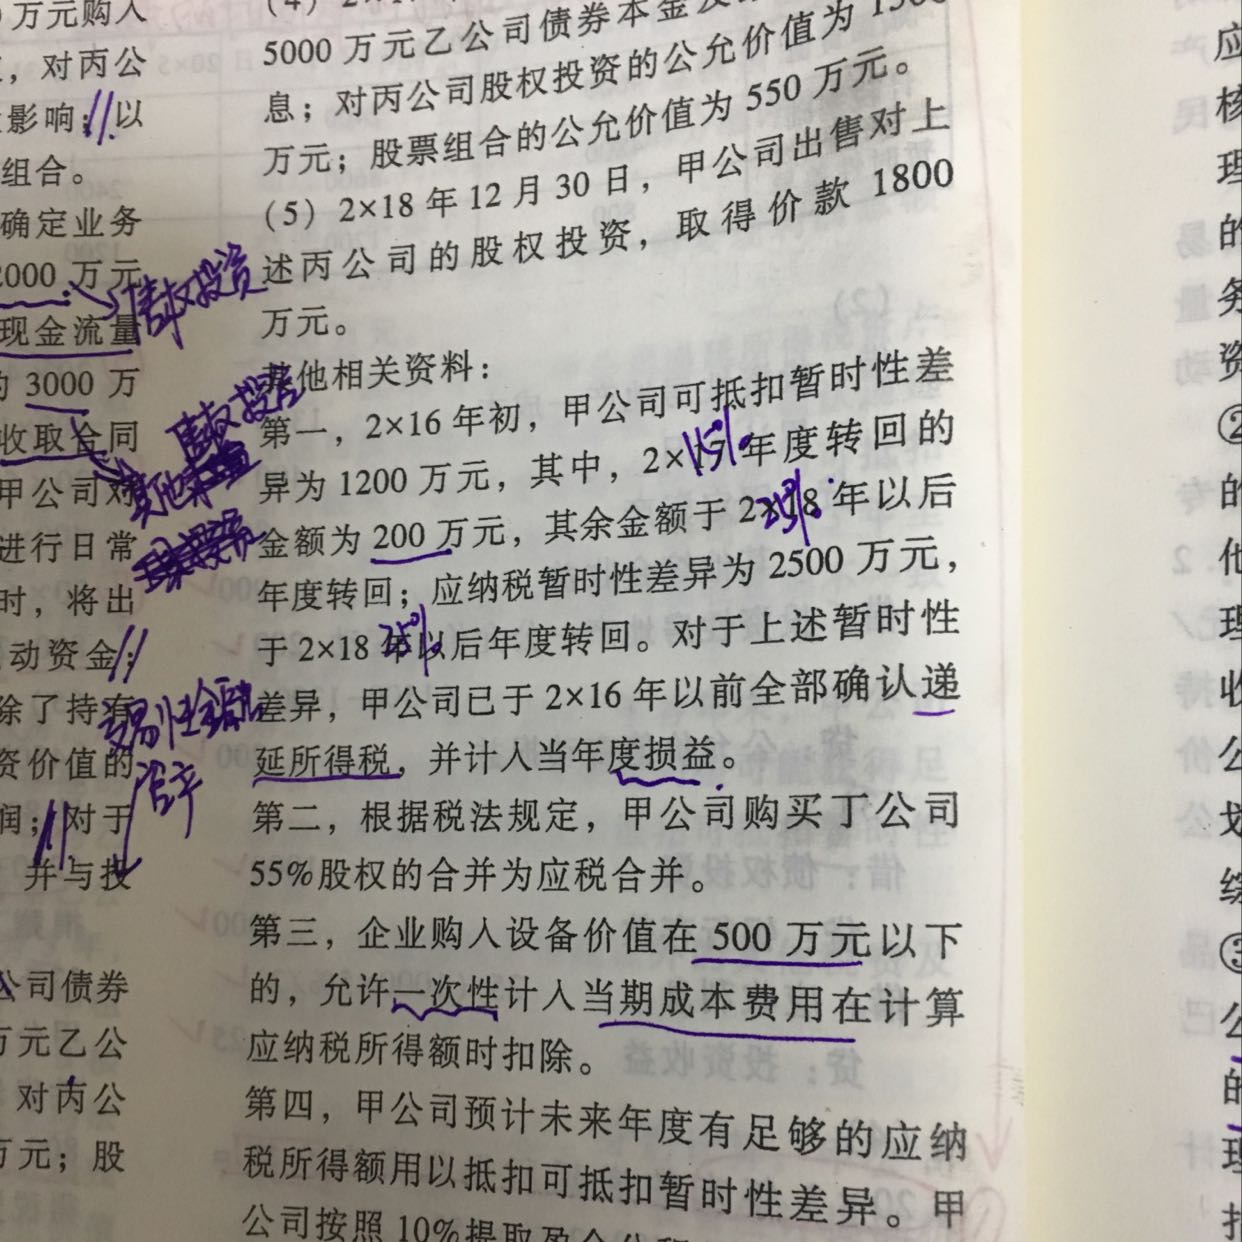 万元购入
，对丙公
影响；以
组合。
确定业务
2000 万元
现金流量
3000 万
收取合同
甲公司对
进行日常
时，将出
动资金；
除了持有
资价值的
润；对于
并与投
公司债券
万元乙公
对丙公
万元；股
债权投资
债权投资
交易性金融
资产
5000 万元乙公司债券本金及
息；对丙公司股权投资的公允价值为
万元；股票组合的公允价值为 550 万元。
（5）2×18 年 12 月 30 日，甲公司出售对上
述丙公司的股权投资，取得价款 1800
万元。
其他相关资料：
第一，2×16 年初，甲公司可抵扣暂时性差
15%
异为 1200 万元，其中，2×17 年度转回的
25%
金额为 200 万元，其余金额于 2×18 年以后
年度转回；应纳税暂时性差异为 2500 万元，
25%
于 2×18 年以后年度转回。对于上述暂时性
差异，甲公司已于 2×16 年以前全部确认递
延所得税，并计入当年度损益。
第二，根据税法规定，甲公司购买丁公司
55%股权的合并为应税合并。
第三，企业购入设备价值在 500 万元以下
的，允许一次性计入当期成本费用在计算
应纳税所得额时扣除。
第四，甲公司预计未来年度有足够的应纳
税所得额用以抵扣可抵扣暂时性差异。甲
公司按照 10%提取盈余公积
应
核
理
的
务
资
②
的
他
理
收
公
划
综
③
公
的
理